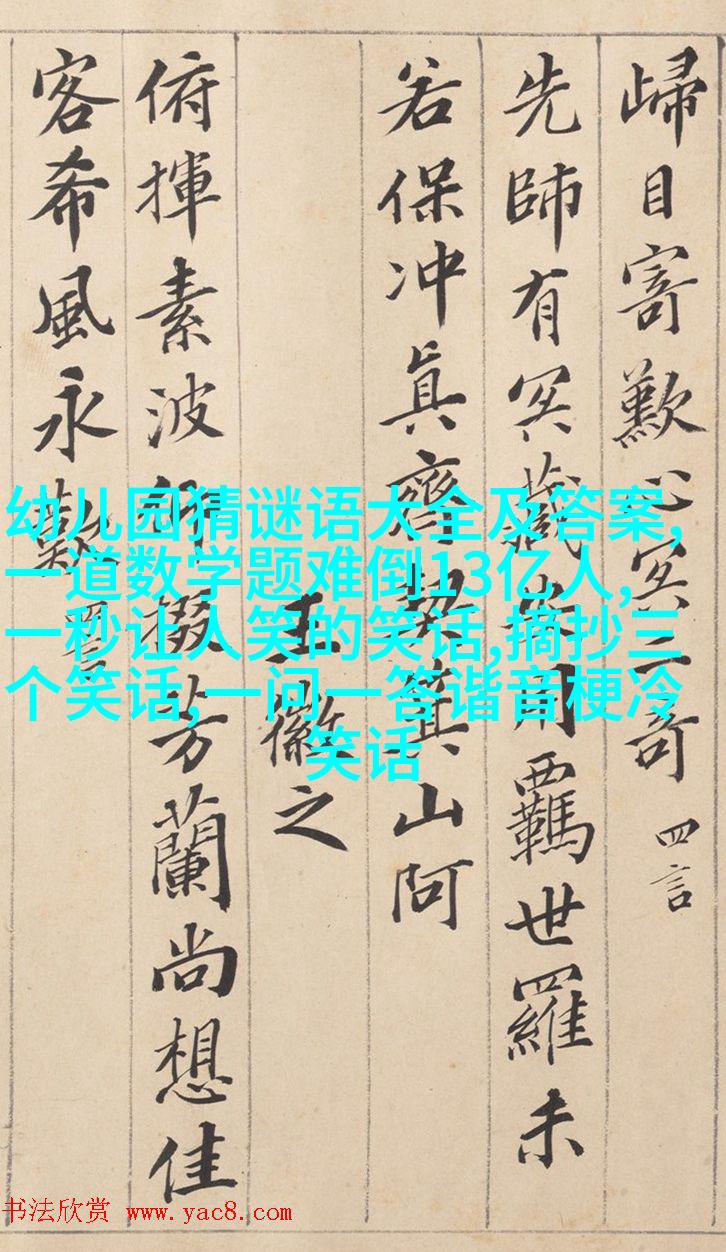 歸目寄歎心冥二奇 四言
先師有冥藏安用羈世羅未
若保冲真齊契箕山阿
王徽之
俯揮素波仰掇芳蘭尚想佳
客希風永歎
幼儿园猜谜语大全及答案,
一道数学题难倒13亿人,
一秒让人笑的笑话,摘抄三
个笑话,一问一答谐音梗冷
笑话
书法欣赏 www.yac8.com